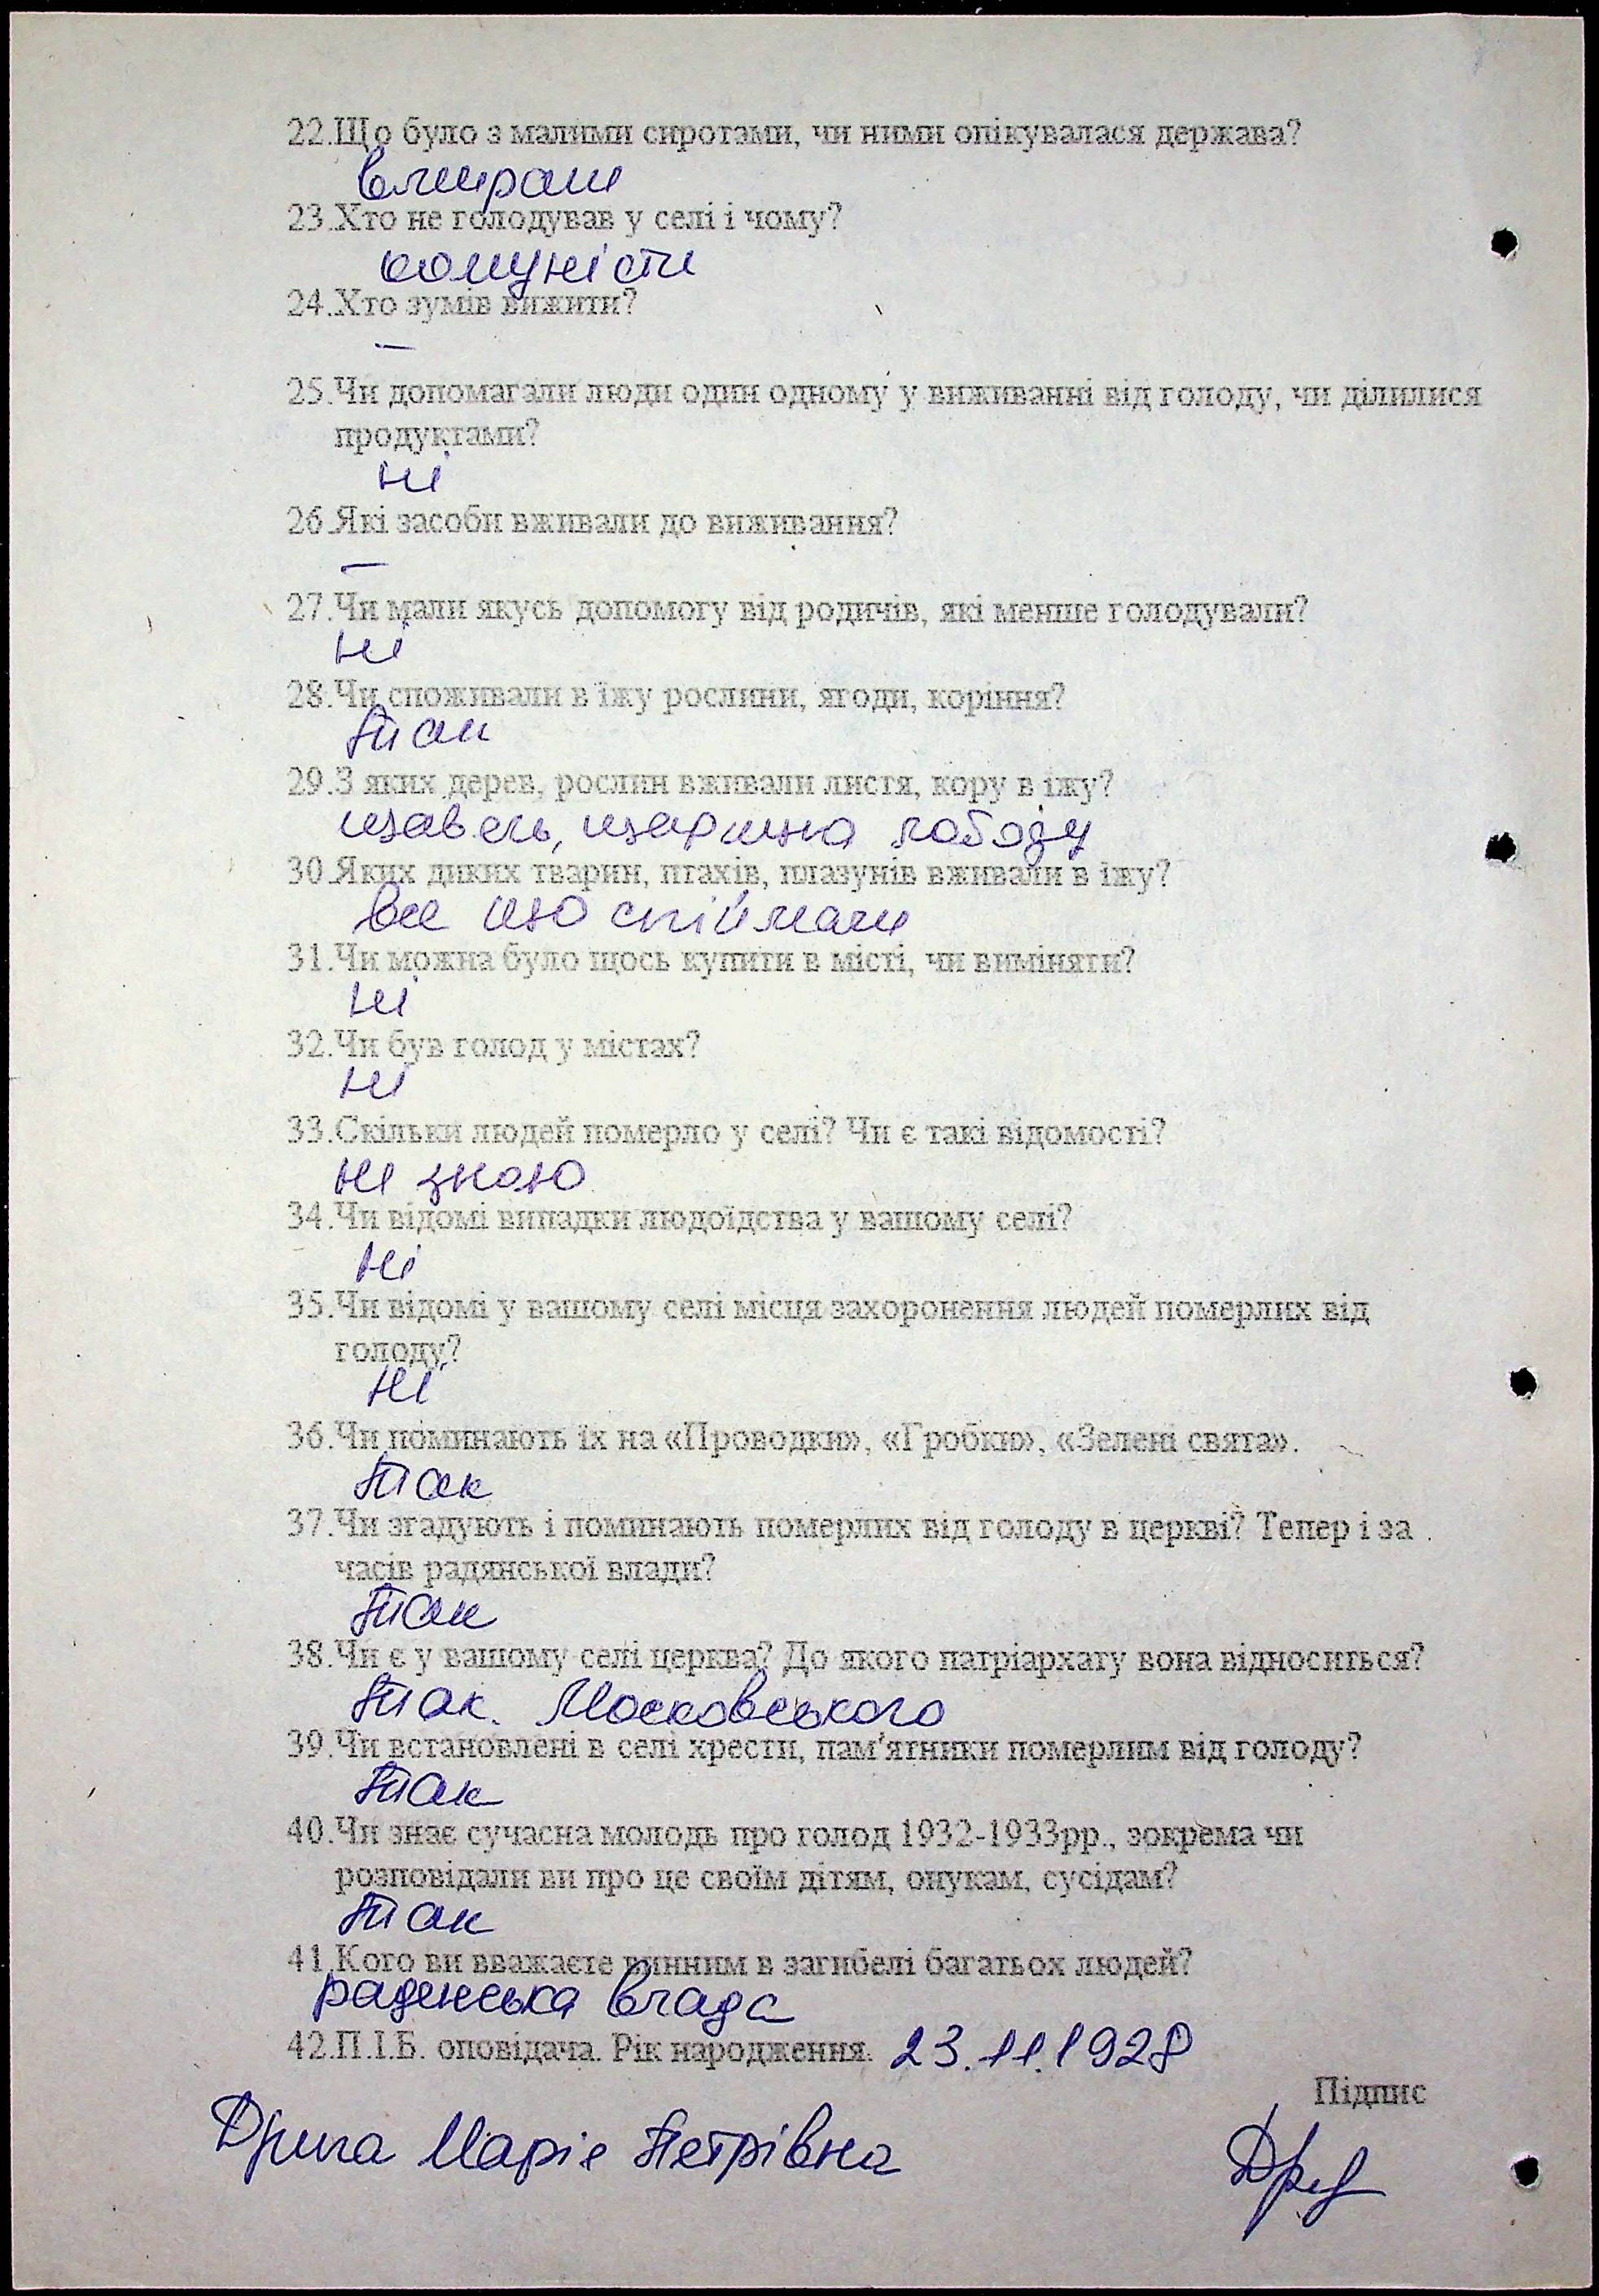 22.Що було з малими сиротами, чи ними опікувалася держава?
вмирали
23.Хто не голодував у селі і чому?
комуністи
24.Хто зумів вижити?
—
25.Чи допомагали люди один одному у виживанні від голоду, чи ділилися
продуктами?
ні
26.Які засоби вживали до виживання?
—
27.Чи мали якусь допомогу від родичів, які менше голодували?
ні
28.Чи споживали в їжу рослини, ягоди, коріння?
так
29.З яких дерев, рослин вживали листя, кору в їжу?
щавель, лободу
30.Яких диких тварин, птахів, плазунів вживали в їжу?
все що спіймали
31.Чи можна було щось купити в місті, чи виміняти?
ні
32.Чи був голод у містах?
ні
33.Скільки людей померло у селі? Чи є такі відомості?
не знаю
34.Чи відомі випадки людоїдства у вашому селі?
ні
35.Чи відомі у вашому селі місця захоронення людей померлих від
голоду?
ні
36.Чи поминають їх на «Проводки», «Гробки», «Зелені свята».
так
37.Чи згадують і поминають померлих від голоду в церкві? Тепер і за
часів радянської влади?
так
38.Чи є у вашому селі церква? До якого патріархату вона відноситься?
так. Московського
39.Чи встановлені в селі хрести, пам'ятники померлим від голоду?
так
40.Чи знає сучасна молодь про голод 1932-1933рр., зокрема чи
розповідали ви про це своїм дітям, онукам, сусідам?
так
41.Кого ви вважаєте винним в загибелі багатьох людей?
раденська влада
42.П.І.Б. оповідача. Рік народження. 23.11.1928
Підпис
Марія Петрівна